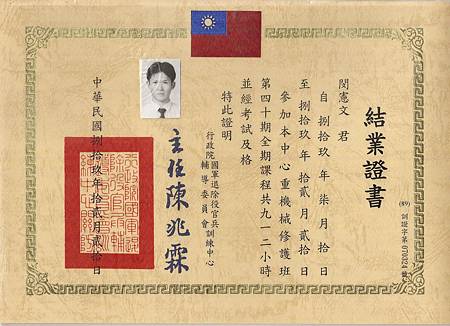 結業證書
(89) 訓證字第070324號
閔憲文 君
自捌拾玖年柒月拾日
至捌拾玖年拾貳月貳拾日
參加本中心重機械修護班
第四十期全期課程共九一二小時
並經考試及格
特此證明
行政院國軍退除役官兵輔導委員會訓練中心
主任陳兆霖
中華民國捌拾玖年拾貳月貳拾日